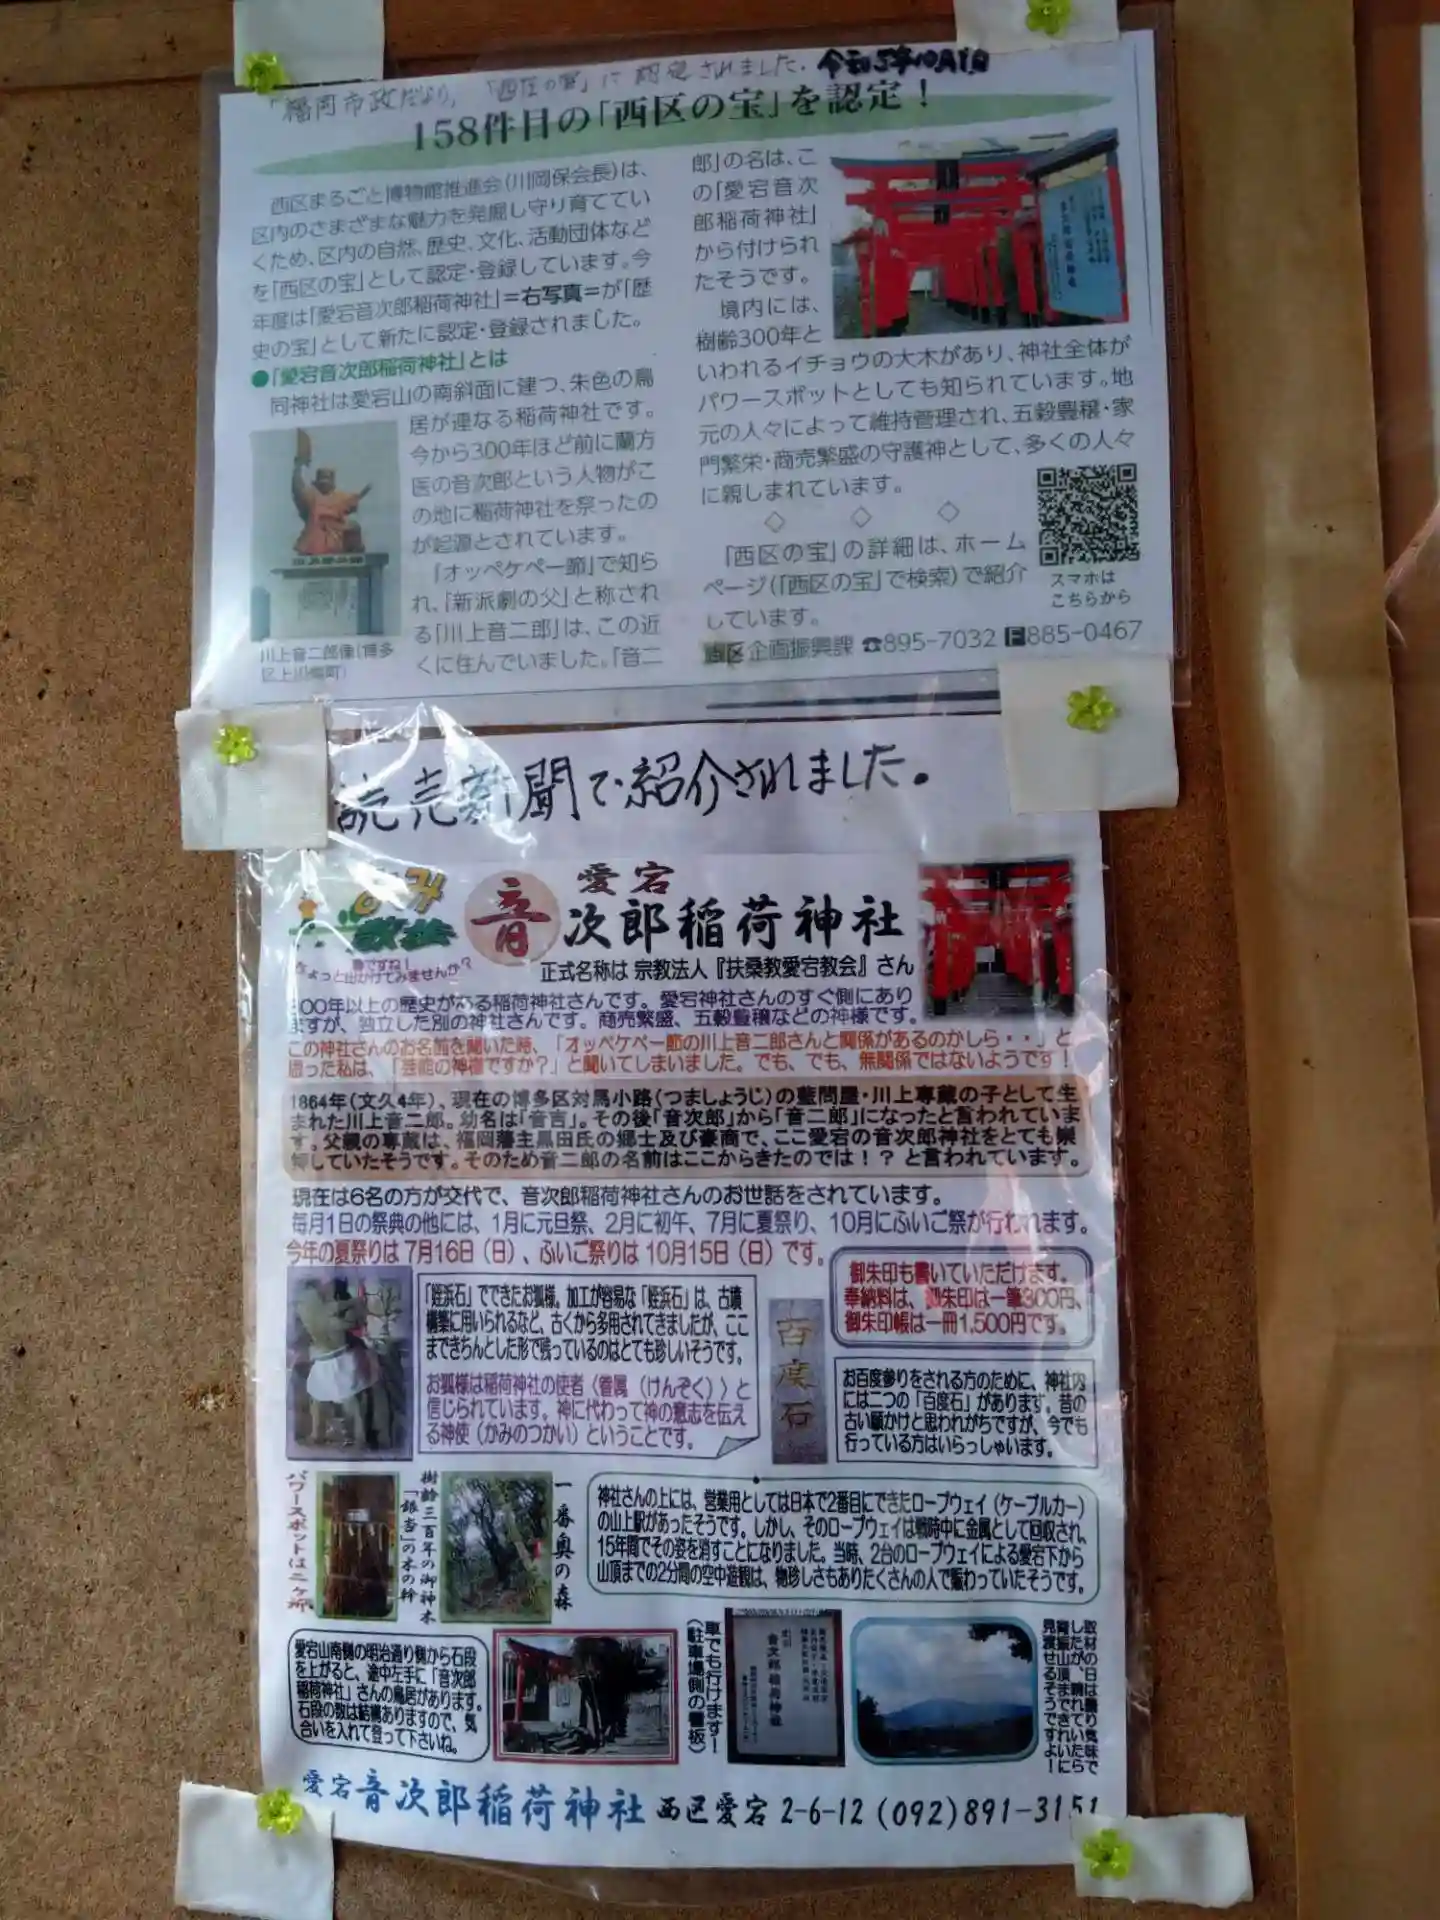 「福岡市政だより」「西区の宝」に認定されました. 令和5年10月1日
158件目の「西区の宝」を認定！
西区まるごと博物館推進会(川岡保会長)は、
区内のさまざまな魅力を発掘し守り育ててい
くため、区内の自然、歴史、文化、活動団体など
を「西区の宝」として認定・登録しています。今
年度は「愛宕音次郎稲荷神社」=右写真=が「歴
史の宝」として新たに認定・登録されました。
●「愛宕音次郎稲荷神社」とは
同神社は愛宕山の南斜面に建つ、朱色の鳥
居が連なる稲荷神社です。
今から300年ほど前に蘭方
医の音次郎という人物がこ
の地に稲荷神社を祭ったの
が起源とされています。
「オッペケペー節」で知ら
れ、「新派劇の父」と称され
る「川上音二郎」は、この近
くに住んでいました。「音二
川上音二郎像(博多
区上川端町)
郎」の名は、こ
の「愛宕音次
郎稲荷神社」
から付けられ
たそうです。
境内には、
樹齢300年と
いわれるイチョウの大木があり、神社全体が
パワースポットとしても知られています。地
元の人々によって維持管理され、五穀豊穣・家
門繁栄・商売繁盛の守護神として、多くの人々
に親しまれています。
◇ ◇ ◇
「西区の宝」の詳細は、ホーム
ページ(「西区の宝」で検索)で紹介
しています。
スマホは
こちらから
西区企画振興課 ☎895-7032 F885-0467
読売新聞で紹介されました。
愛宕
音次郎稲荷神社
正式名称は 宗教法人『扶桑教愛宕教会』さん
ちょっと出かけてみませんか？
300年以上の歴史がある稲荷神社さんです。愛宕神社さんのすぐ側にあり
ますが、独立した別の神社さんです。商売繁盛、五穀豊穣などの神様です。
この神社さんのお名前を聞いた時、「オッペケペー節の川上音二郎さんと関係があるのかしら・・」と
思った私は、「芸能の神様ですか？」と聞いてしまいました。でも、でも、無関係ではないようです！
1864年(文久4年)、現在の博多区対馬小路(つましょうじ)の藍問屋・川上専蔵の子として生
まれた川上音二郎。幼名は「音吉」。その後「音次郎」から「音二郎」になったと言われていま
す。父親の専蔵は、福岡藩主黒田氏の郷士及び豪商で、ここ愛宕の音次郎神社をとても崇
拝していたそうです。そのため音二郎の名前はここからきたのでは！？と言われています。
現在は6名の方が交代で、音次郎稲荷神社さんのお世話をされています。
毎月1日の祭典の他には、1月に元旦祭、2月に初午、7月に夏祭り、10月にふいご祭が行われます。
今年の夏祭りは 7月16日（日）、ふいご祭りは 10月15日（日）です。
御朱印も書いていただけます。
奉納料は、御朱印は一筆300円、
御朱印帳は一冊1,500円です。
「姪浜石」でできたお狐様。加工が容易な「姪浜石」は、古墳
構築に用いられるなど、古くから多用されてきましたが、ここ
まできちんとした形で残っているのはとても珍しいそうです。
お狐様は稲荷神社の使者〈眷属（けんぞく）〉と
信じられています。神に代わって神の意志を伝え
る神使（かみのつかい）ということです。
百度石
お百度参りをされる方のために、神社内
には二つの「百度石」があります。昔の
古い願かけと思われがちですが、今でも
行っている方はいらっしゃいます。
パワースポットは二ヶ所
樹齢三百年の御神木
「銀杏」の木の幹
一番奥の森
神社さんの上には、営業用としては日本で2番目にできたロープウェイ（ケーブルカー）
の山上駅があったそうです。しかし、そのロープウェイは戦時中に金属として回収され、
15年間でその姿を消すことになりました。当時、2台のロープウェイによる愛宕下から
山頂までの2分間の空中遊観は、物珍しさもありたくさんの人で賑わっていたそうです。
愛宕山南側の明治通り側から石段
を上がると、途中左手に「音次郎
稲荷神社」さんの鳥居があります。
石段の数は結構ありますので、気
合いを入れて登って下さいね。
車でも行けます！
（駐車場側の看板）
音次郎稲荷神社
取材の日は曇り気味で
したが、晴れていたら
背振山頂まできれいに
見渡せるそうですよ！
愛宕音次郎稲荷神社 西区愛宕 2-6-12 (092)891-3151